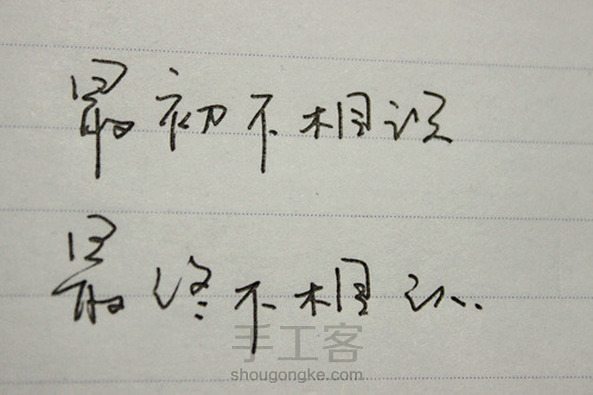 最初不相识
最终不相认
手工客
shougongke.com